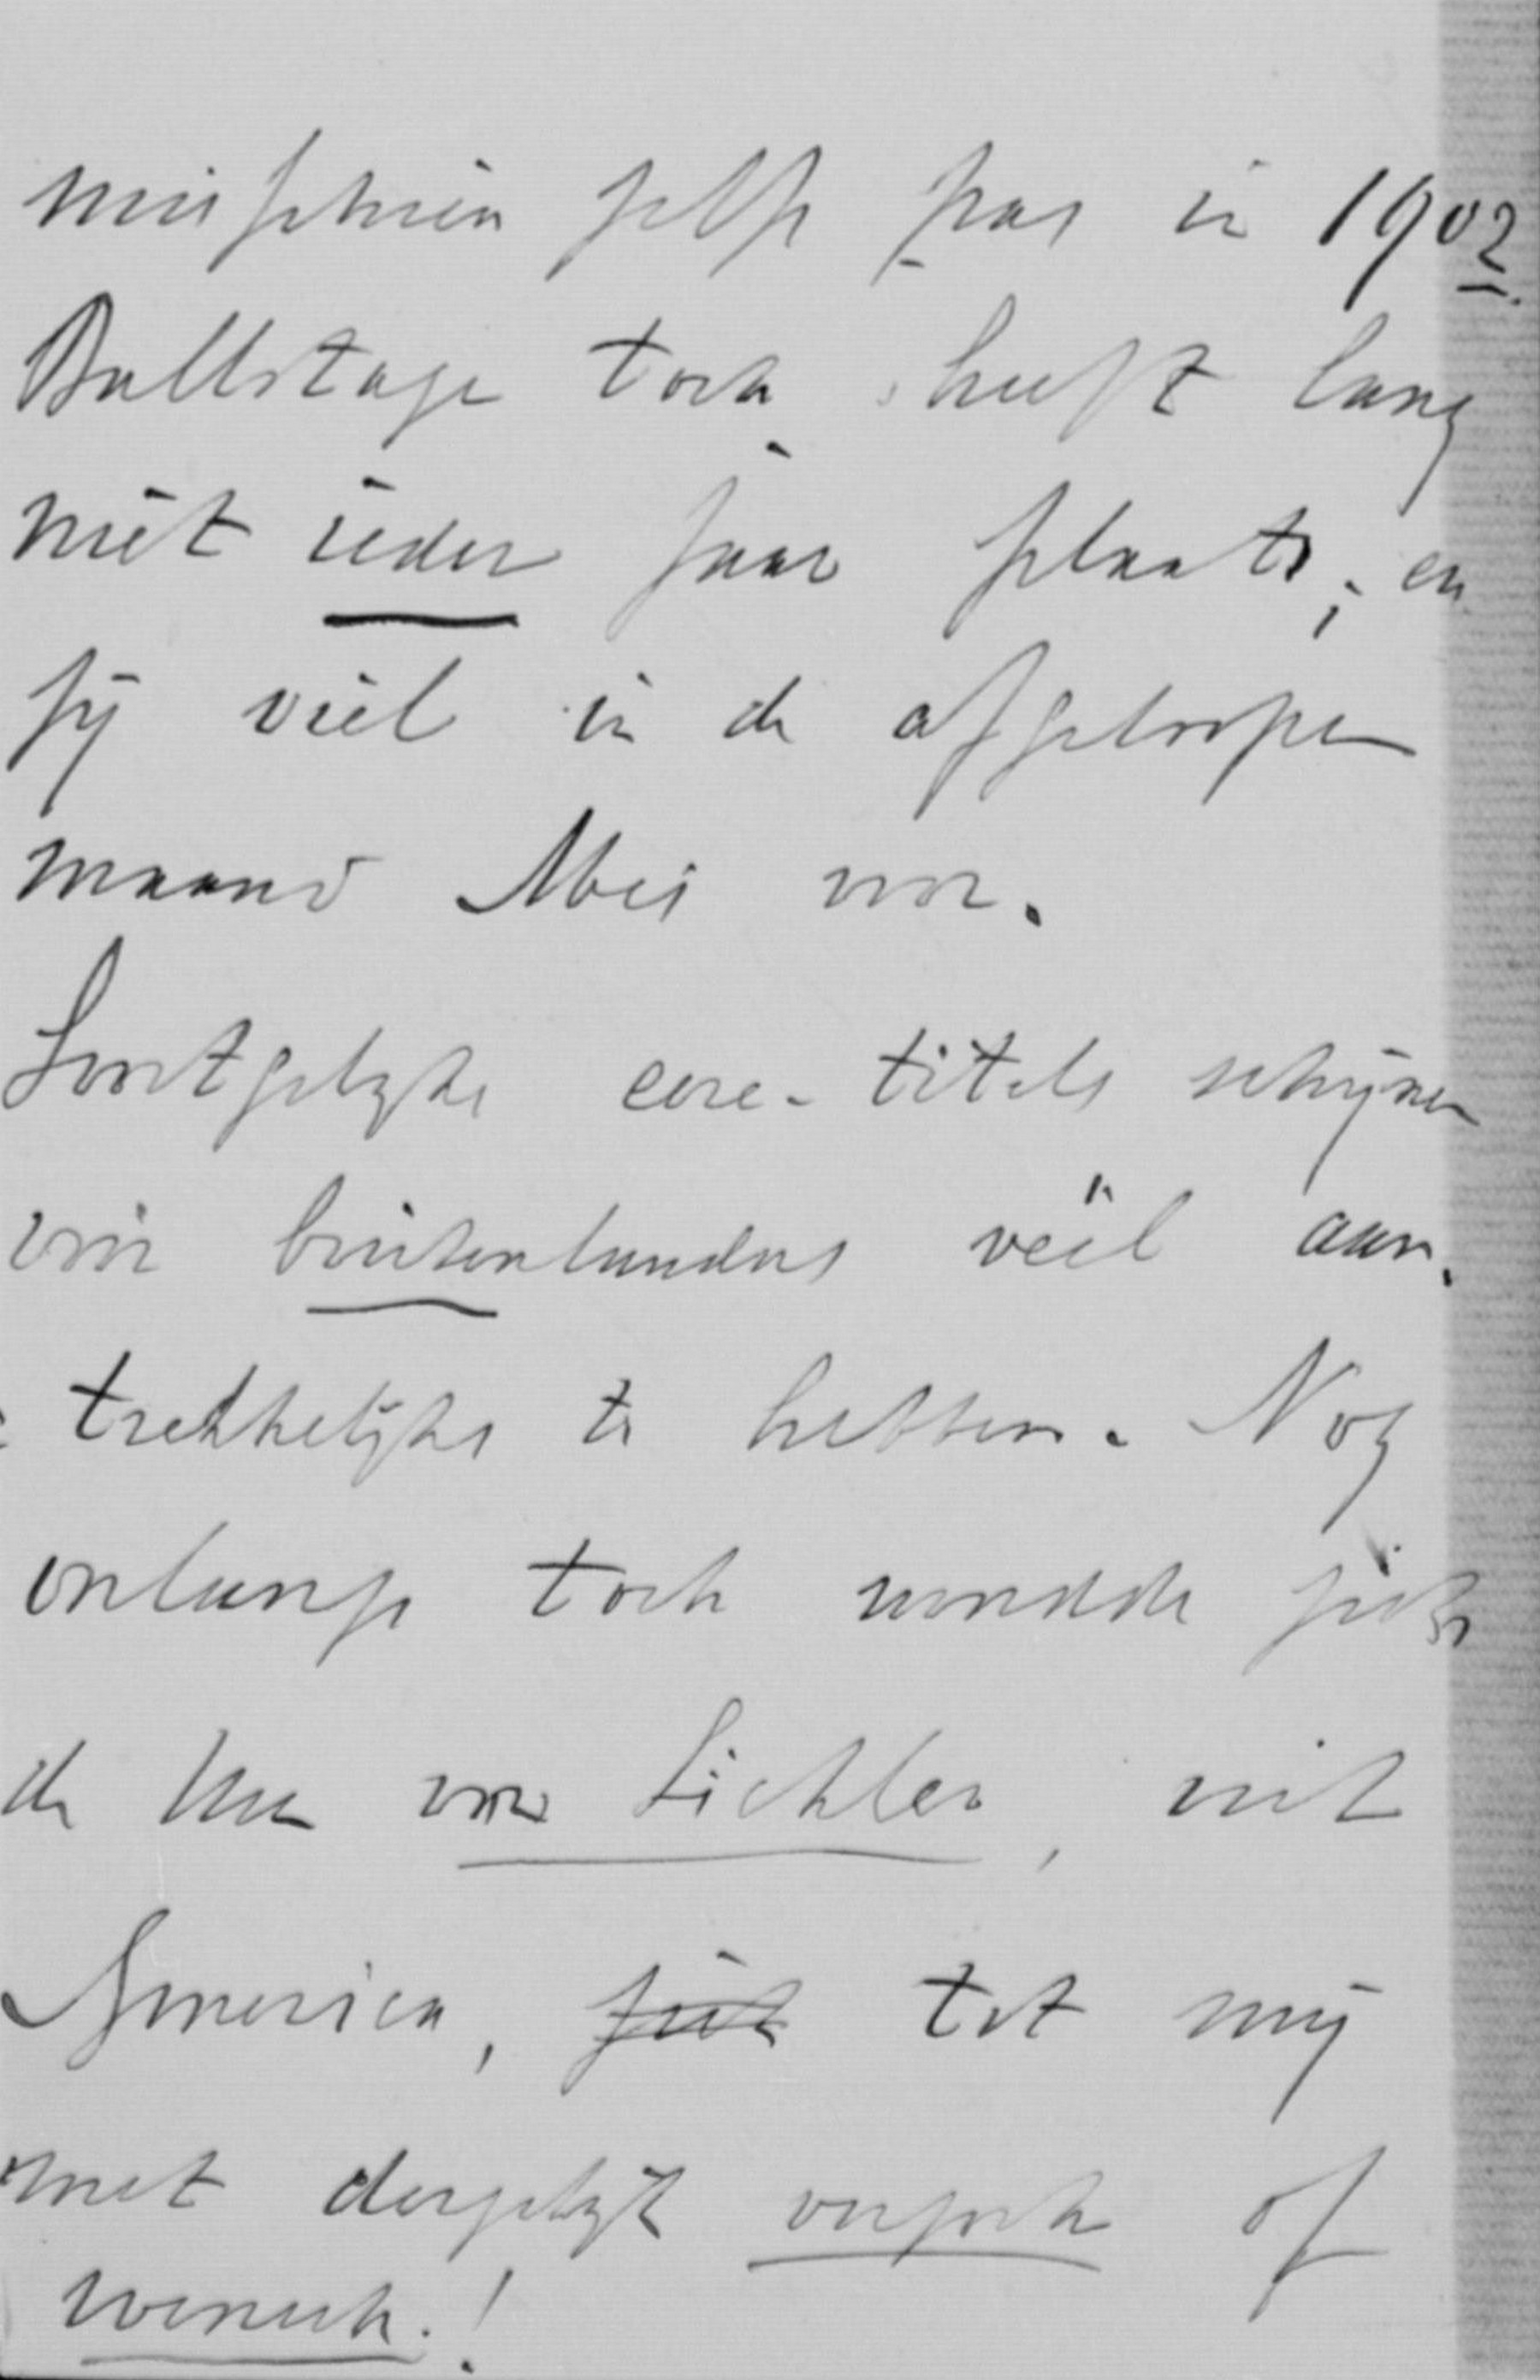 misschien zelfs pas in 1902.
Ballotage toch heeft lang
niet ieder jaar plaats; en
zij viel in de afgeloopen
maand Mei voor.
Soortgelijke eere-titels schijnen
voor buitenlanders veel aan-
trekkelijks te hebben. Nog
onlangs toch wendde zich
de Heer von Lichler, uit
America, zich tot mij
met dergelijk verzoek of
wensch.!